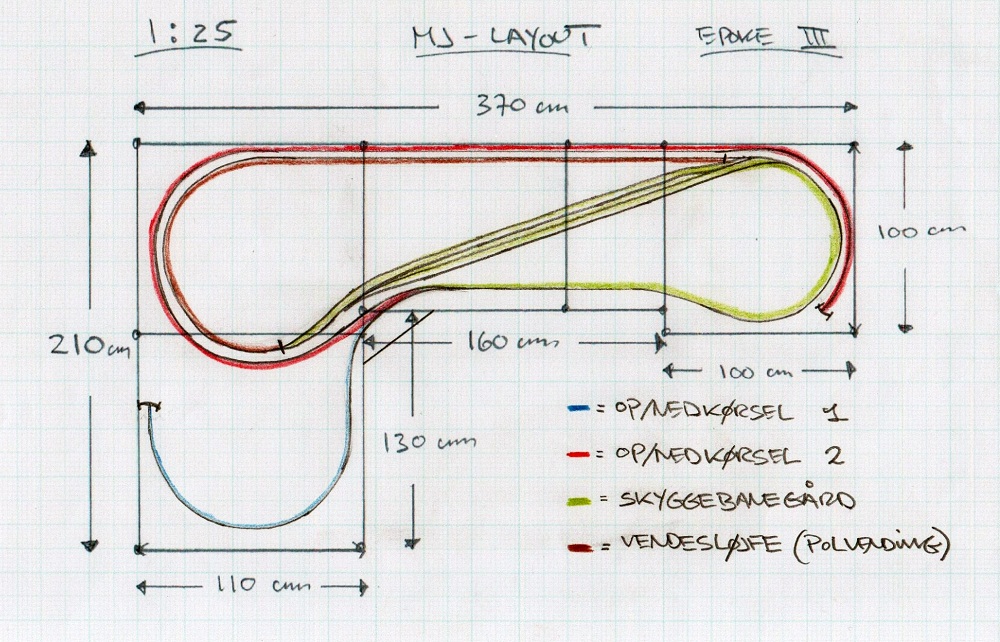 1:25
MJ-LAYOUT
EPOKE III
370 cm
100 cm
210 cm
160 cm
100 cm
130 cm
110 cm
= OP/NEDKØRSEL 1
= OP/NEDKØRSEL 2
= SKYGGEBANEGÅRD
= VENDESLØJFE (POLVENDING)